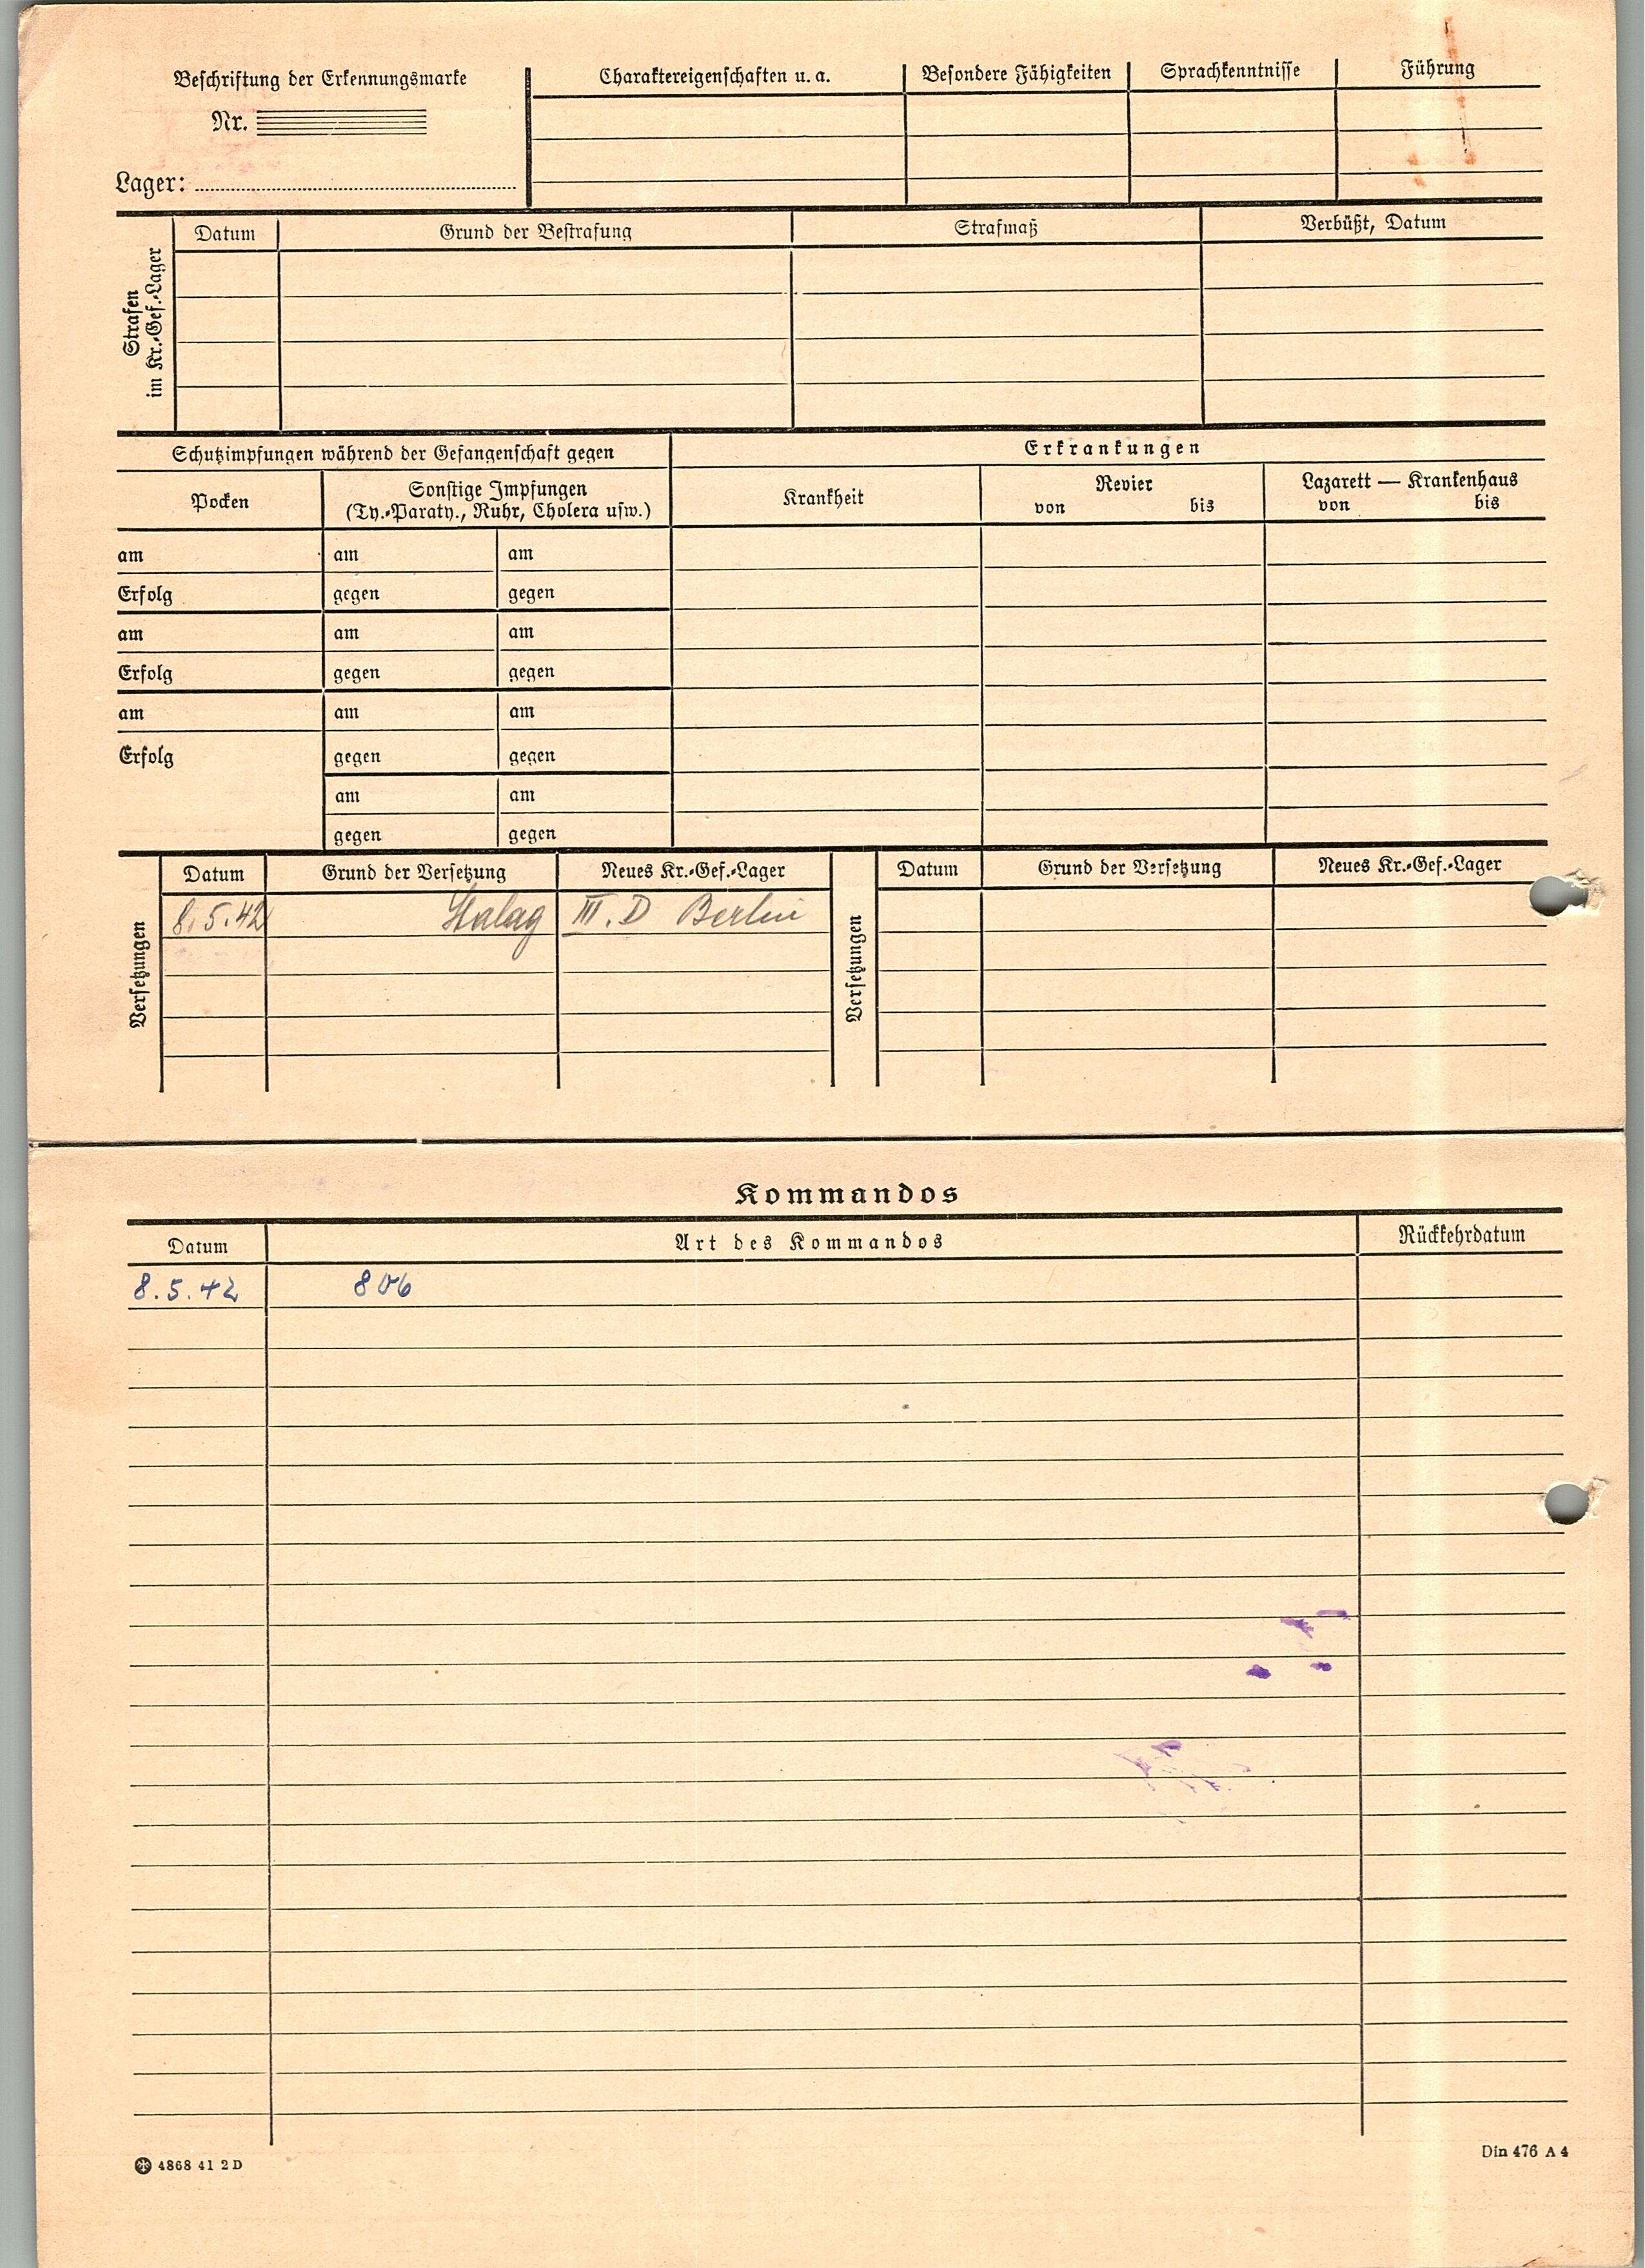 Beschriftung der Erkennungsmarke
Nr.
Lager:
Charaktereigenschaften u. a. Besondere Fähigkeiten Sprachkenntnisse Führung
Strafen
im Kr.-Gef.-Lager
Datum Grund der Bestrafung Strafmaß Verbüßt, Datum
Schutzimpfungen während der Gefangenschaft gegen Erkrankungen
Pocken
Sonstige Impfungen
(Ty.-Paraty., Ruhr, Cholera usw.)
Krankheit
Revier
von bis
Lazarett — Krankenhaus
von bis
am am am
Erfolg gegen gegen
am am am
Erfolg gegen gegen
am am am
Erfolg gegen gegen
am am
gegen gegen
Versetzungen
Datum Grund der Versetzung Neues Kr.-Gef.-Lager
8.5.42 Stalag III. D Berlin
Versetzungen
Datum Grund der Versetzung Neues Kr.-Gef.-Lager
Kommandos
Datum Art des Kommandos Rückkehrdatum
8.5.42 806
4868 41 2 D
Din 476 A 4